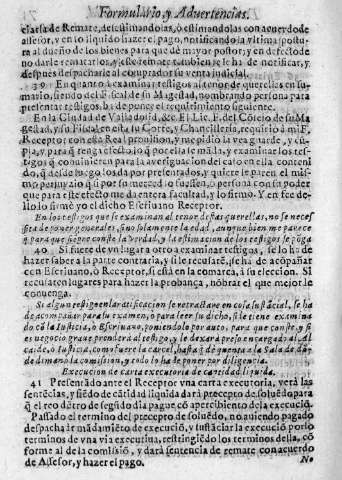 Formulario, y Advertencias.
clarsa de Remate, desestimandolas, ò estimandolas con acuerdo de
assesor, y en lo liquido haze el pago, notificando la vltima postu
ra al dueño de los bienes para que dè mayor postor, y en defecto de
no darle rematarlos, y este remate tambien se le ha de notificar, y
despues despacharle al comprador su venta judicial.
39 En quanto à examinar testigos al tenor de querellas en su-
mario, siendo del Fiscal de su Magestad, nombrando persona para
presentar testigos, ha de ponce el requirimiento siguiente.
En la Ciudad de Valladolid, &c. El Lic. F. del Cōsejo de su Ma
gestad, y su Fiscal en esta su Corte, y Chancilleria, requiriò à mi F.
Receptor con esta Real prouision, y me pidiò la vea, guarde, y cū-
pla, y para q̄ tenga efecto lo q̄ por ella se mãda, y examine los tes-
tigos q̄ conuinieren para la aueriguacion del caso en ella conteni
do, q̄ desde luego los da por presentados, y quiere le paren el mis-
mo perjuyzio q̄ si por su mesmo lo fuessen, o persona con su poder
que para este efecto me da entera facultad, y lo firmò. Y en fee de-
llo lo firmè yo el dicho Escriuano Receptor.
En los testigos que se examinan al tenor destas querellas, no se neces
sita de poner generales, sino solamente la edad, aunque bien me parece
q̄ para que siempre conste la verdad, y la estimacion de los testigos se pōga
40 Si fuere de vn lugar a otro a examinar testigos, se lo ha de
hazer saber a la parte contraria, y si le recusarē, se ha de acōpañar
con Escriuano, ò Receptor, si està en la comarca, à su eleccion. Si
recusaren lugares para hazer la probança, nōbrar el que mejor le
conuenga.
Si algun testigo en la ratificacion se retractare en cosa sustãcial, se ha
de acompañar para su examen, o para leer su dicho, si le tiene examina
do cō la Iusticia, ò Escriuano, poniendolo por auto, para que conste, y si
es negocio graue prenderà al testigo, y le dexarà preso encargado al Al
caide, ò Iusticia, como fuere la carcel, hasta q̄ de quenta a la Sala de dō-
de dimanò la comission, y todo lo ha de poner por diligencia.
Execucion de carta executoria de cantidad liquida.
41 Presentado ante el Receptor vna carta executoria, verà las
sentēcias, y siēdo de cãtidad liquida darà precepto de soluēdo para
q̄ el reo dētro de segūdo dia pague cō apercibiento de la execuciō.
Passado el termino del precepto de soluēdo, no auiendo pagado
despacharà mãdamiēto de execuciō, y sustãciar la execuciō por lo
terminos de vna via executiua, restringiēdo los terminos della, cō
forme al de la comissiō, y darà sentencia de remate con acuerdo
de Assesor, y hazer el pago.
No